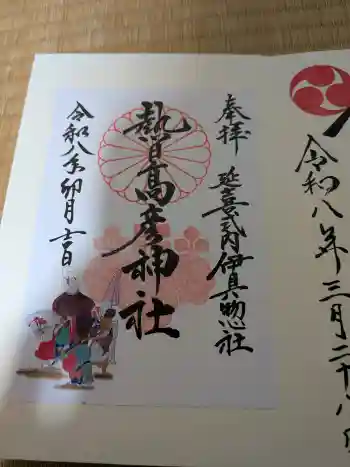 奉拝 延喜式内 伊具惣社
熱日高彦神社
令和八年卯月吉日
令和八年三月二十八